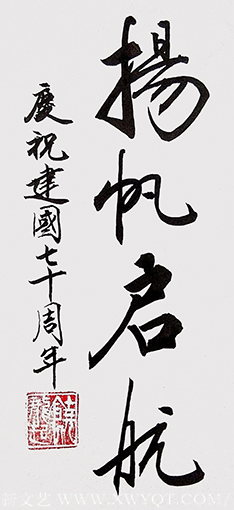 揚帆启航
慶祝建國七十周年
新文艺 WWW.XWYQT.COM